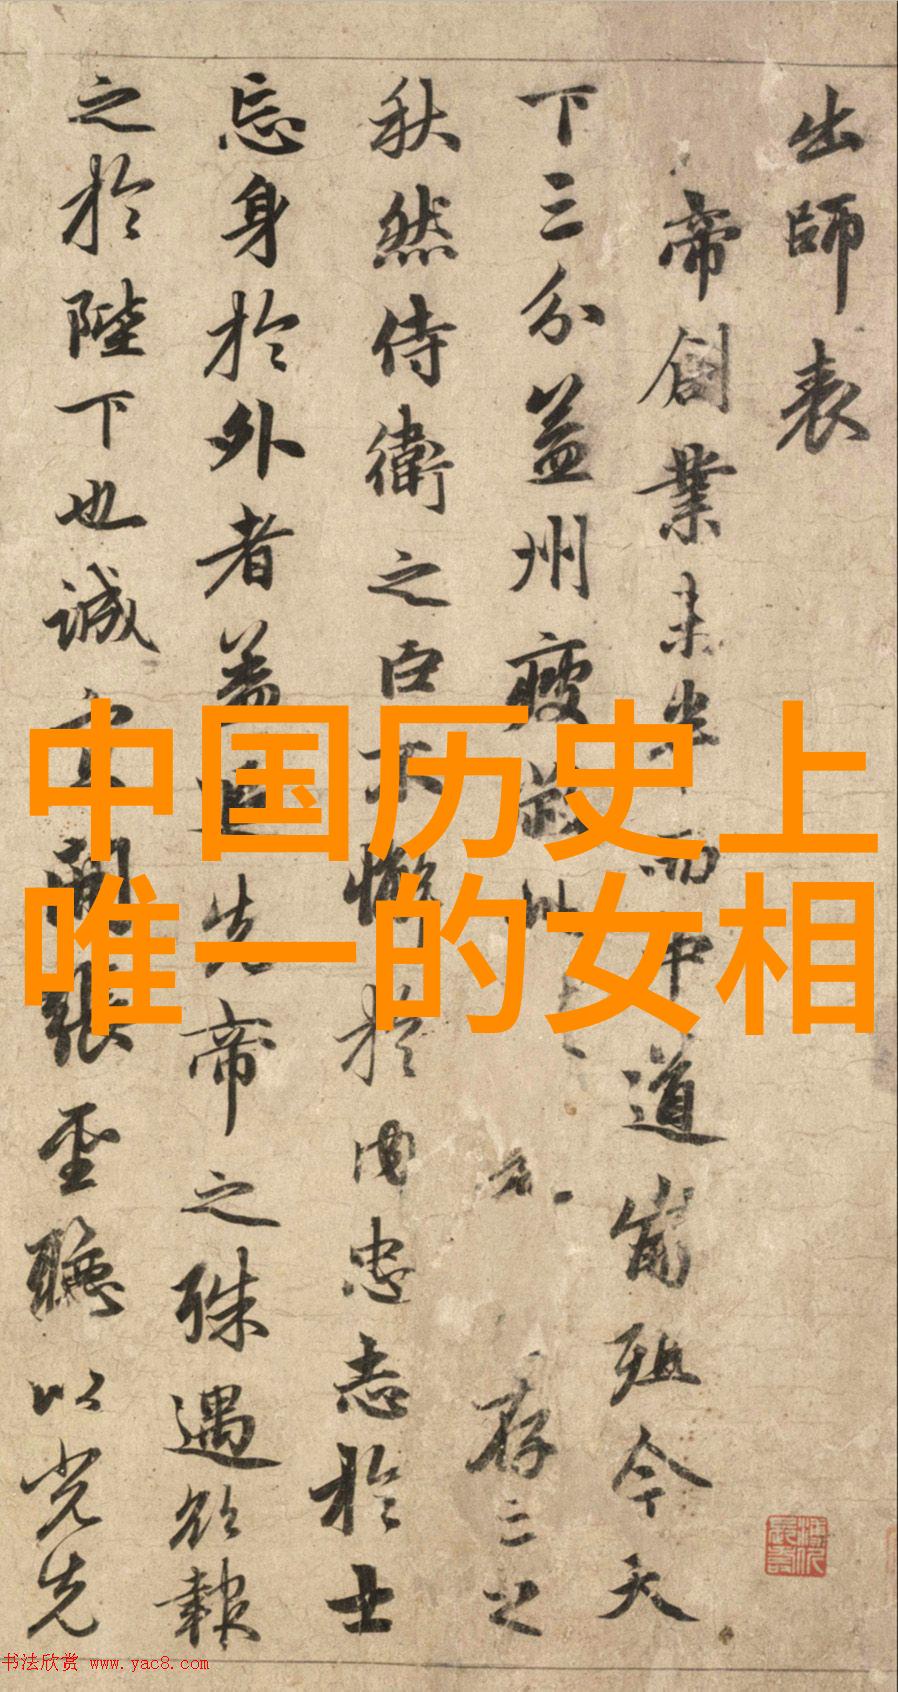 出師表
帝創業未半而中道崩殂今天
下三分益州疲敝此存亡之
秋然侍衛之臣不懈於内忠志於士
忘身於外者蓋追先帝之殊遇欲報
之於陛下也誠宜開張聖聽以光先
中国历史上
唯一的女相
书法欣赏 www.yac8.com